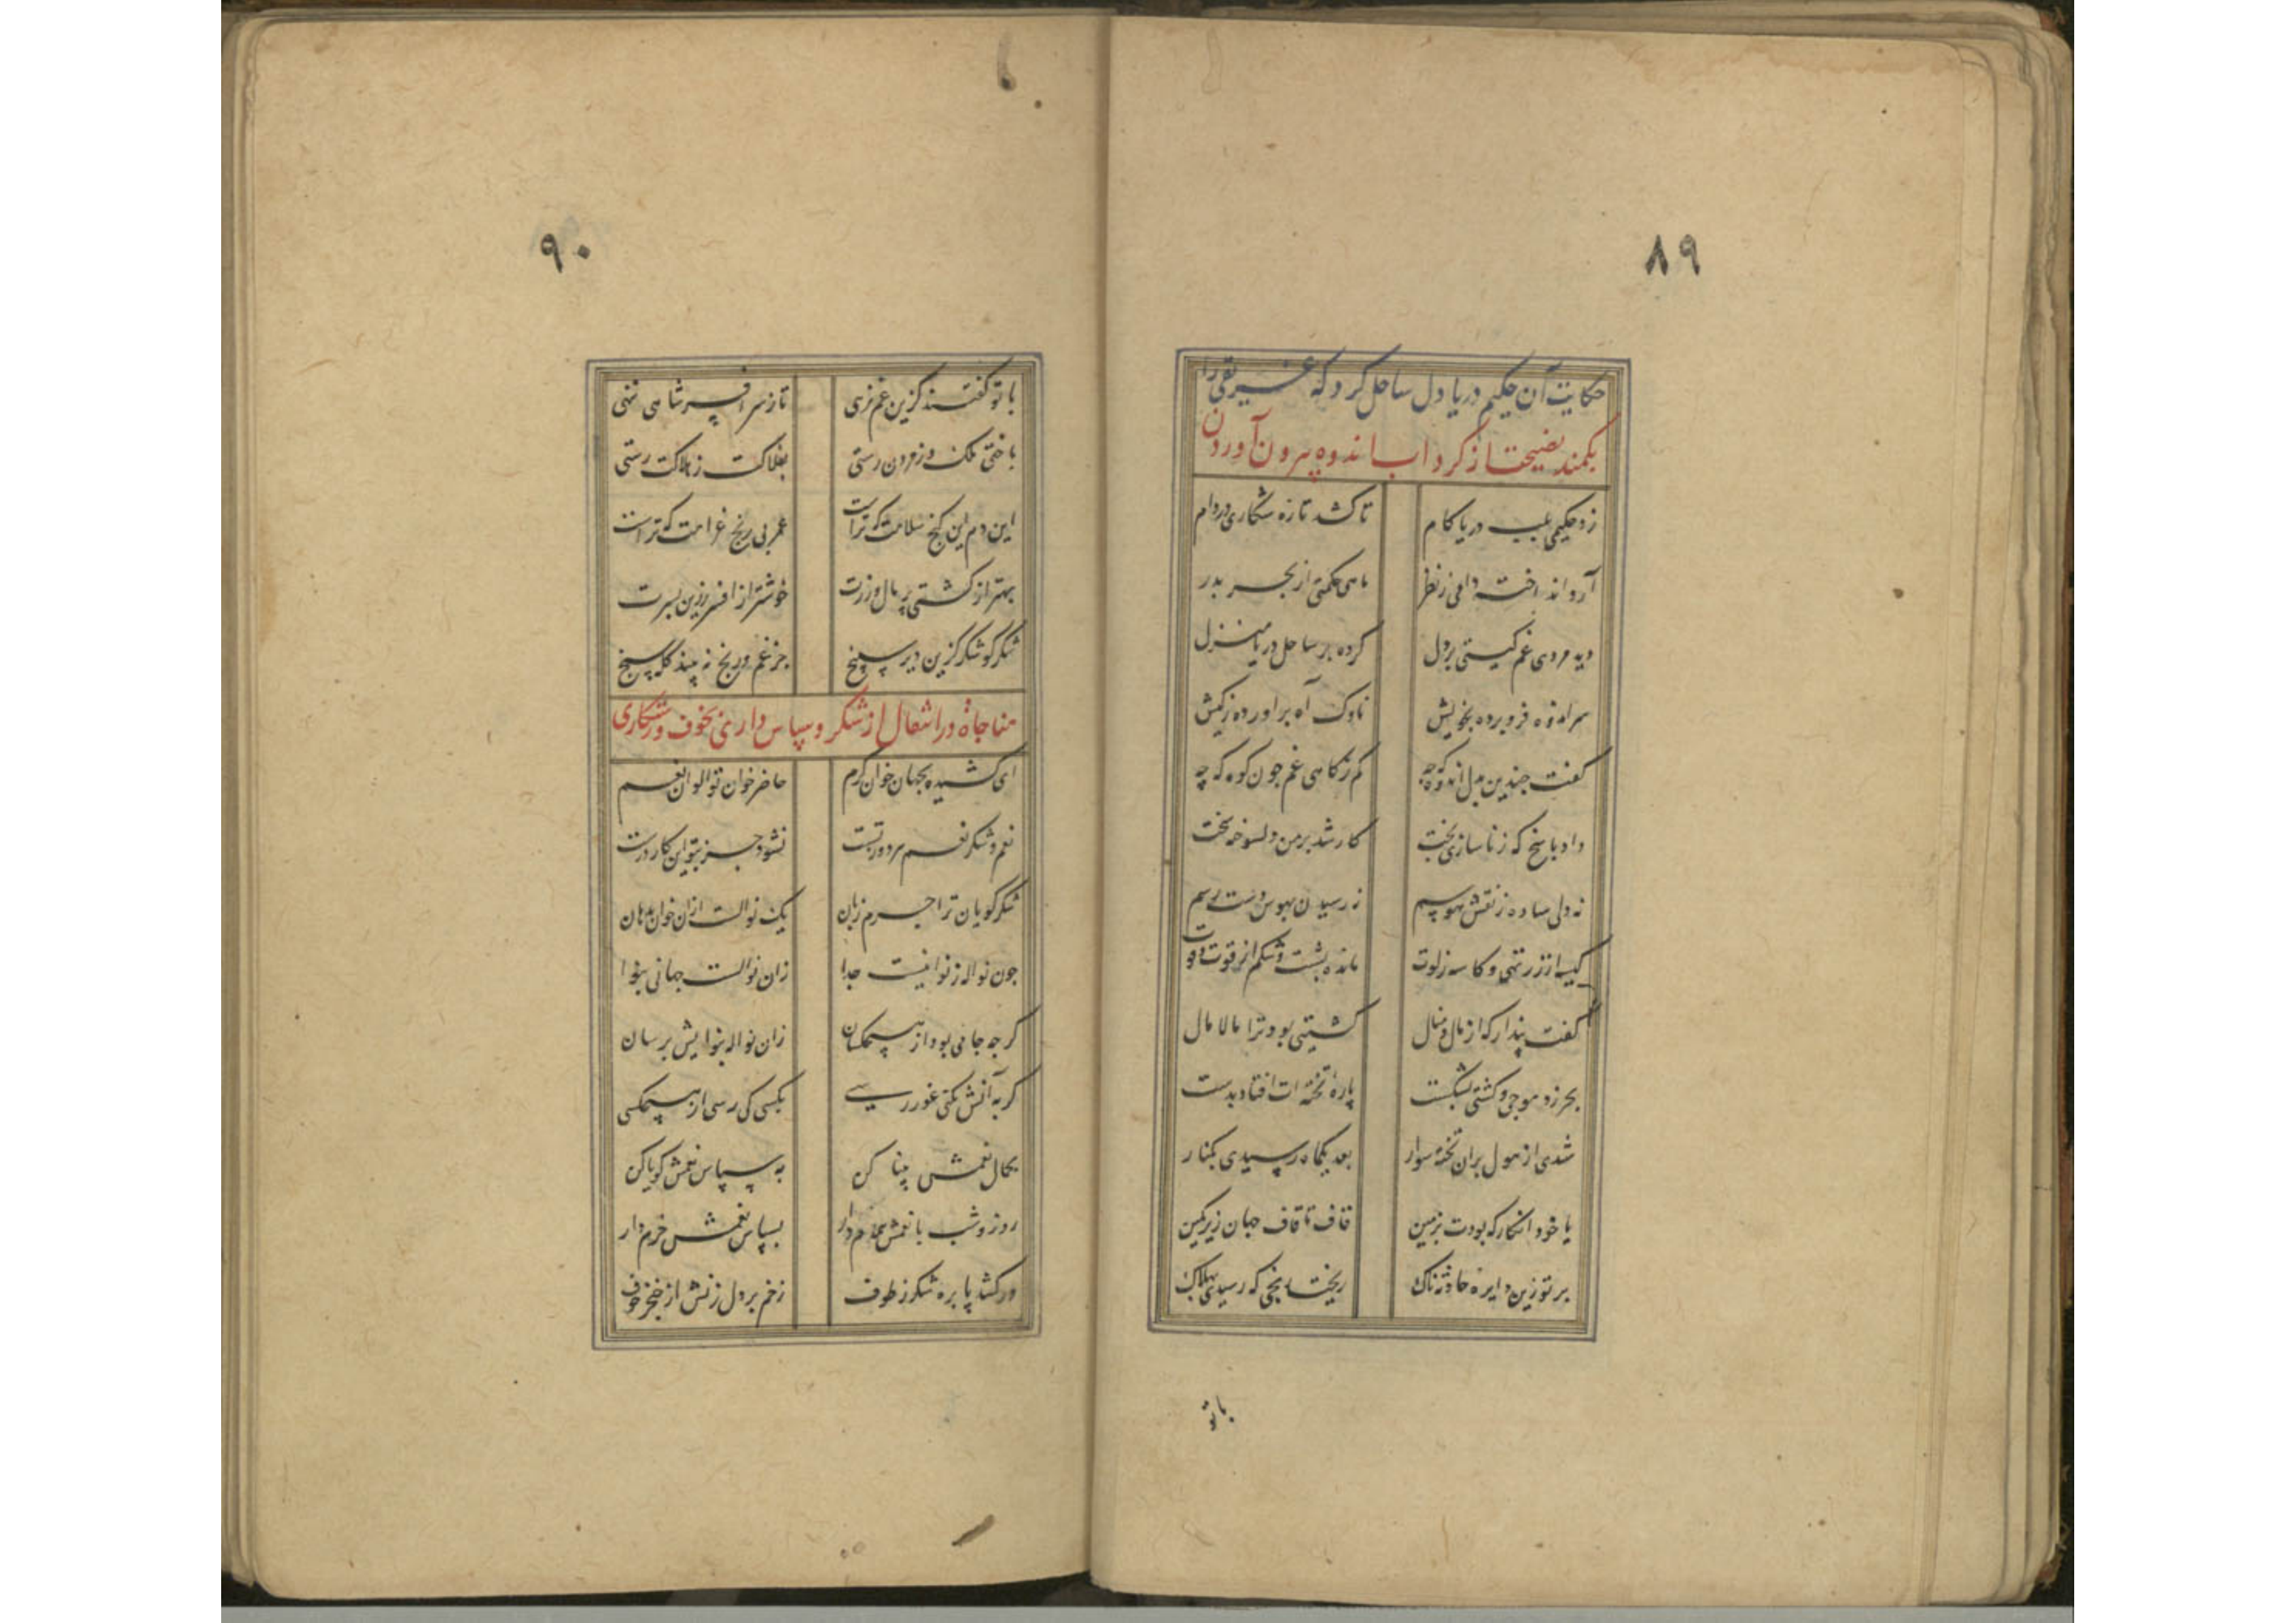 ۸۹
حکایت آن حکیم دریا دل ساحل گرد که غریقی را
بکمند نصیحت از کرداب اندوه بیرون آوردن
زد حکیمی بلب دریا کام تا کشد تازه شکاری در دام
آرد انداخته دامی ز نظر ماهی حکمتی از بحر بدر
دید مردی غم کیتی بر دل کرده بر ساحل دریا منزل
سر اندوه فرو برده بخویش ناوک آه براورده ز کیش
کفت چندین بدل اندوه که چه کم ز کاهی غم چون کوه که چه
داد پاسخ که ز ناسازی بخت کار شد بر من دلسوخته سخت
نه دلی ساده ز نقش هوسم نه رسیدن بهوس دست رسم
کیسه از زر تهی و کاسه ز لوت مانده پشت و شکم از قوت و قوت
کفت پندار که از مال و منال کشتیی بود ترا مالا مال
بحر زد موجی و کشتی بشکست پاره تخته ات افتاد بدست
شدی از هول بران تخته سوار بعد یکماه رسیدی بکنار
یا خود انکار که بودت بزمین قاف تا قاف جهان زیر نکین
بر تو زین دایره حادثه ناک ریخت رنجی که رسیدی بهلاک
باتو
۹۰
با تو کفتند کزین غم نرهی تا ز سر افسر شاهی ننهی
باختی ملک وز مردن رستی بفلاکت ز هلاکت رستی
این دم این کنج سلامت که تراست عمر بی رنج غرامت که تراست
بهتر از کشتی پر مال و زرت خوشتر از افسر زرین بسرت
شکر کو شکر کزین دیر سپنج جز غم و رنج نه بیند کله سنج
مناجاة در انتقال از شکر و سپاس داری بخوف و رستکاری
ای کشیده بجهان خوان کرم حاضر خوان تو الوان نعم
نعم و شکر نعم هر دو ز تست نشود جز بتو این کار درست
شکر کویان ترا جرم زبان یک نواله ست ازان خوان بدهان
چون نواله ز نوا نیست جدا زان نواله ست جهانی بنوا
کرچه جامی بود از هیچکسان زان نواله بنوایش برسان
کر به آنش نکنی غور رسی بکسی کی رسد از هیچکسی
بکمال نعمش بینا کن به سپاس نعمش کویا کن
روز و شب با نعمش همدم دار بسپاس نعمش خرم دار
ور کشد پا بره شکر ز طوف زخم بر دل زنش از خنجر خوف